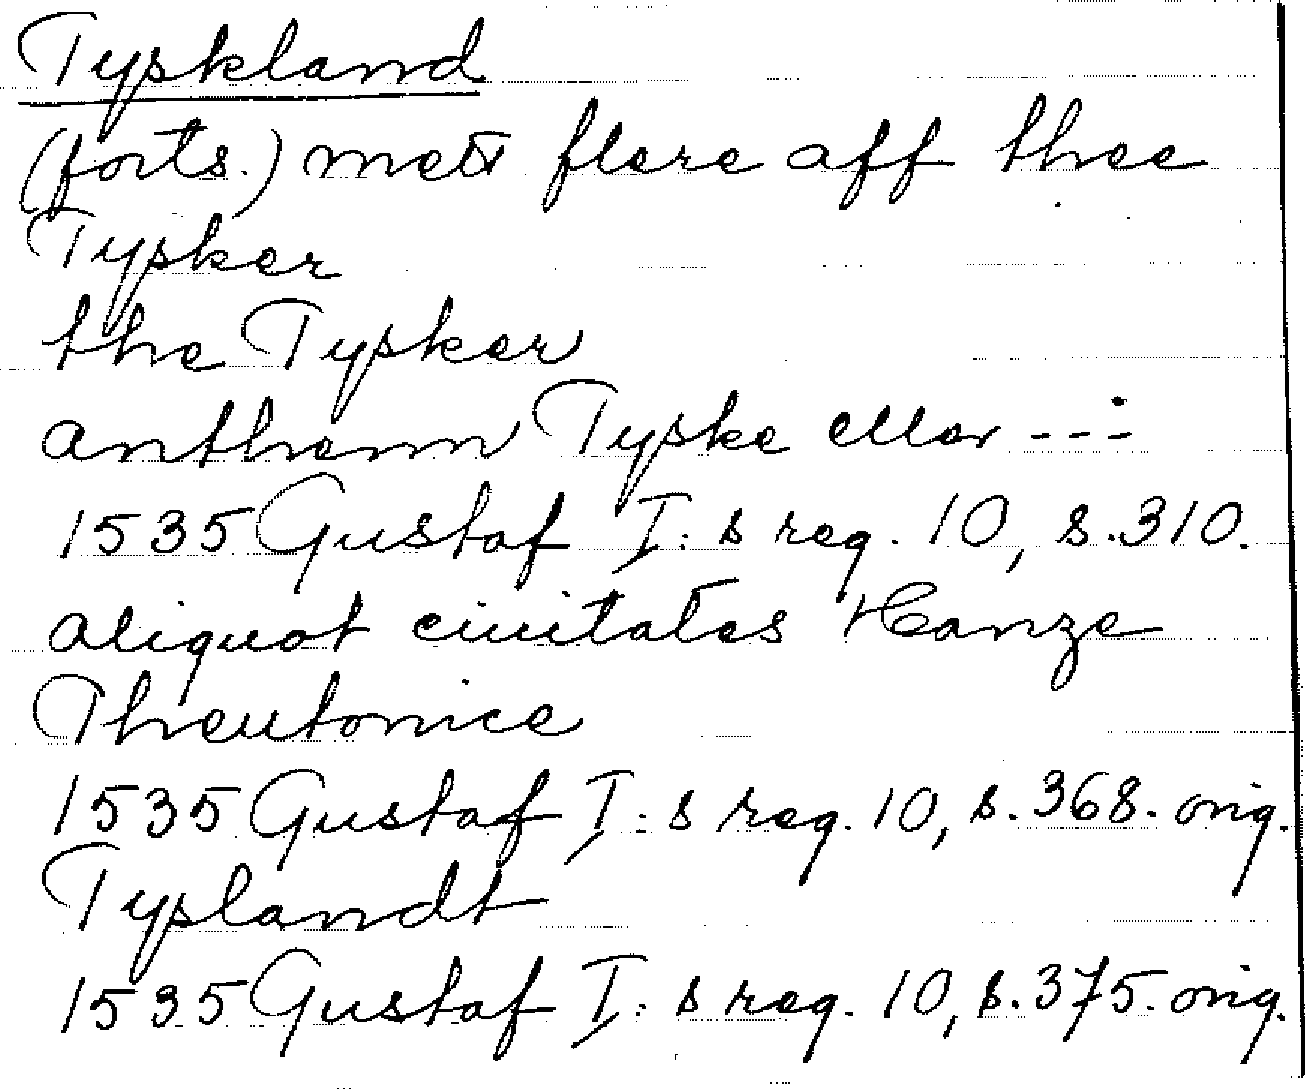 Tyskland
(forts.) mett flere aff thee
Tysker
the Tysker
anthenn Tyske eller ---
1535 Gustaf I:s reg. 10, s. 310.
aliquot ciuitates Hanze
Theutonice
1535 Gustaf I:s reg. 10, s. 368. orig.
Tyslandt
1535 Gustaf I:s reg. 10, s. 375. orig.